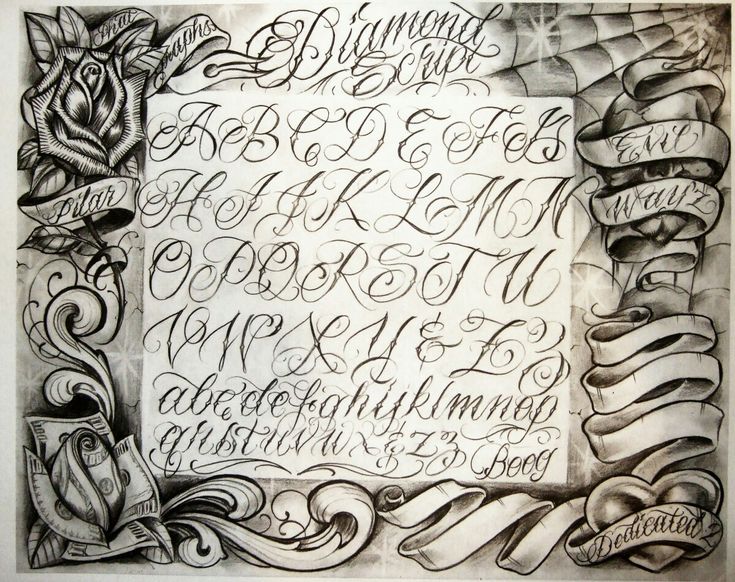 that
graphs
Diamond
Script
A B C D E F G
Evil
H I J K L M N
Pilar
Wayz
O P Q R S T U
V W X Y & Z Z
abcdefghijklmnop
qrstuvwxyzz
Boog
Dedicated 2